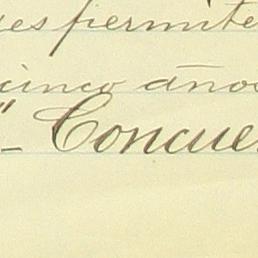 permite
cinco años
"- Concue